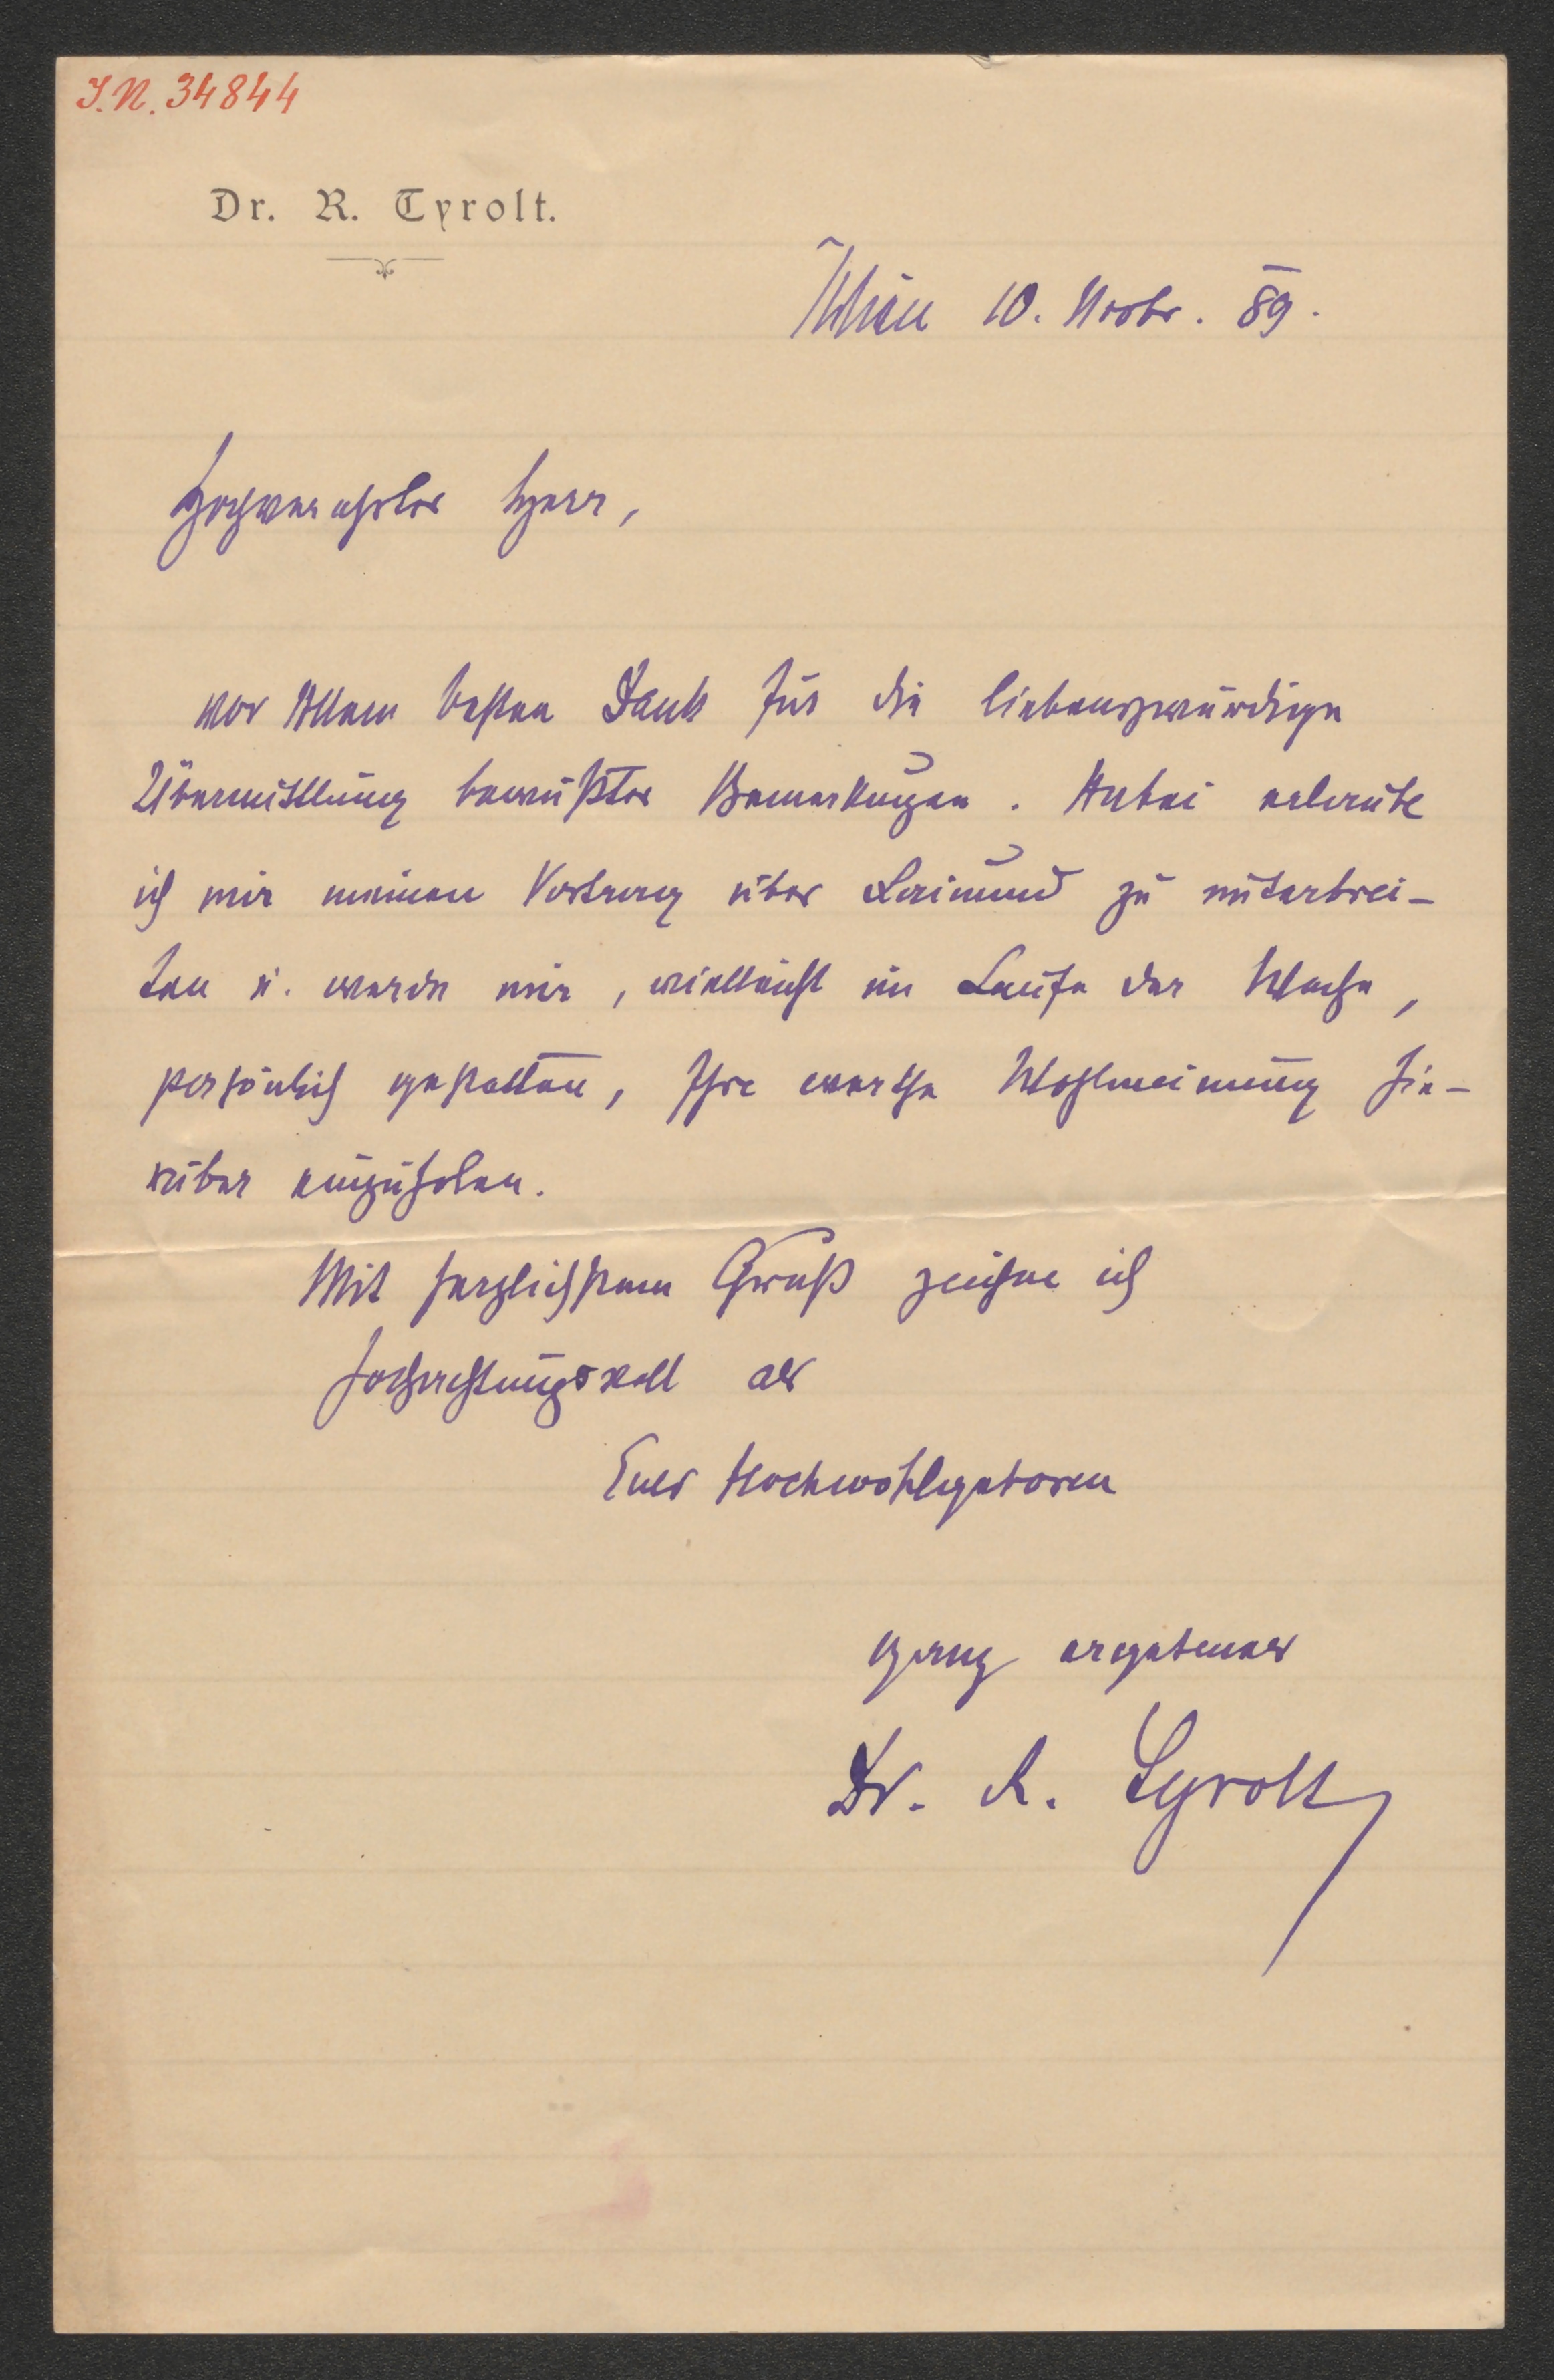 J.N. 34844
Dr. R. Tyrolt.
Wien 10. Novbr. 89.
Hochverehrter Herr,
vor Allem besten Dank für die liebenswürdige
Übermittlung bewußter Bemerkungen. Anbei erlaube
ich mir meinen Vortrag über Raimund zu unterbrei-
ten u. werde mir, vielleicht im Laufe der Woche,
persönlich gestatten, Ihre werthe Wohlmeinung hie-
rüber einzuholen.
Mit herzlichstem Gruß zeichne ich
hochachtungsvoll als
Euer Hochwohlgeboren
ganz ergebener
Dr. R. Tyrolt